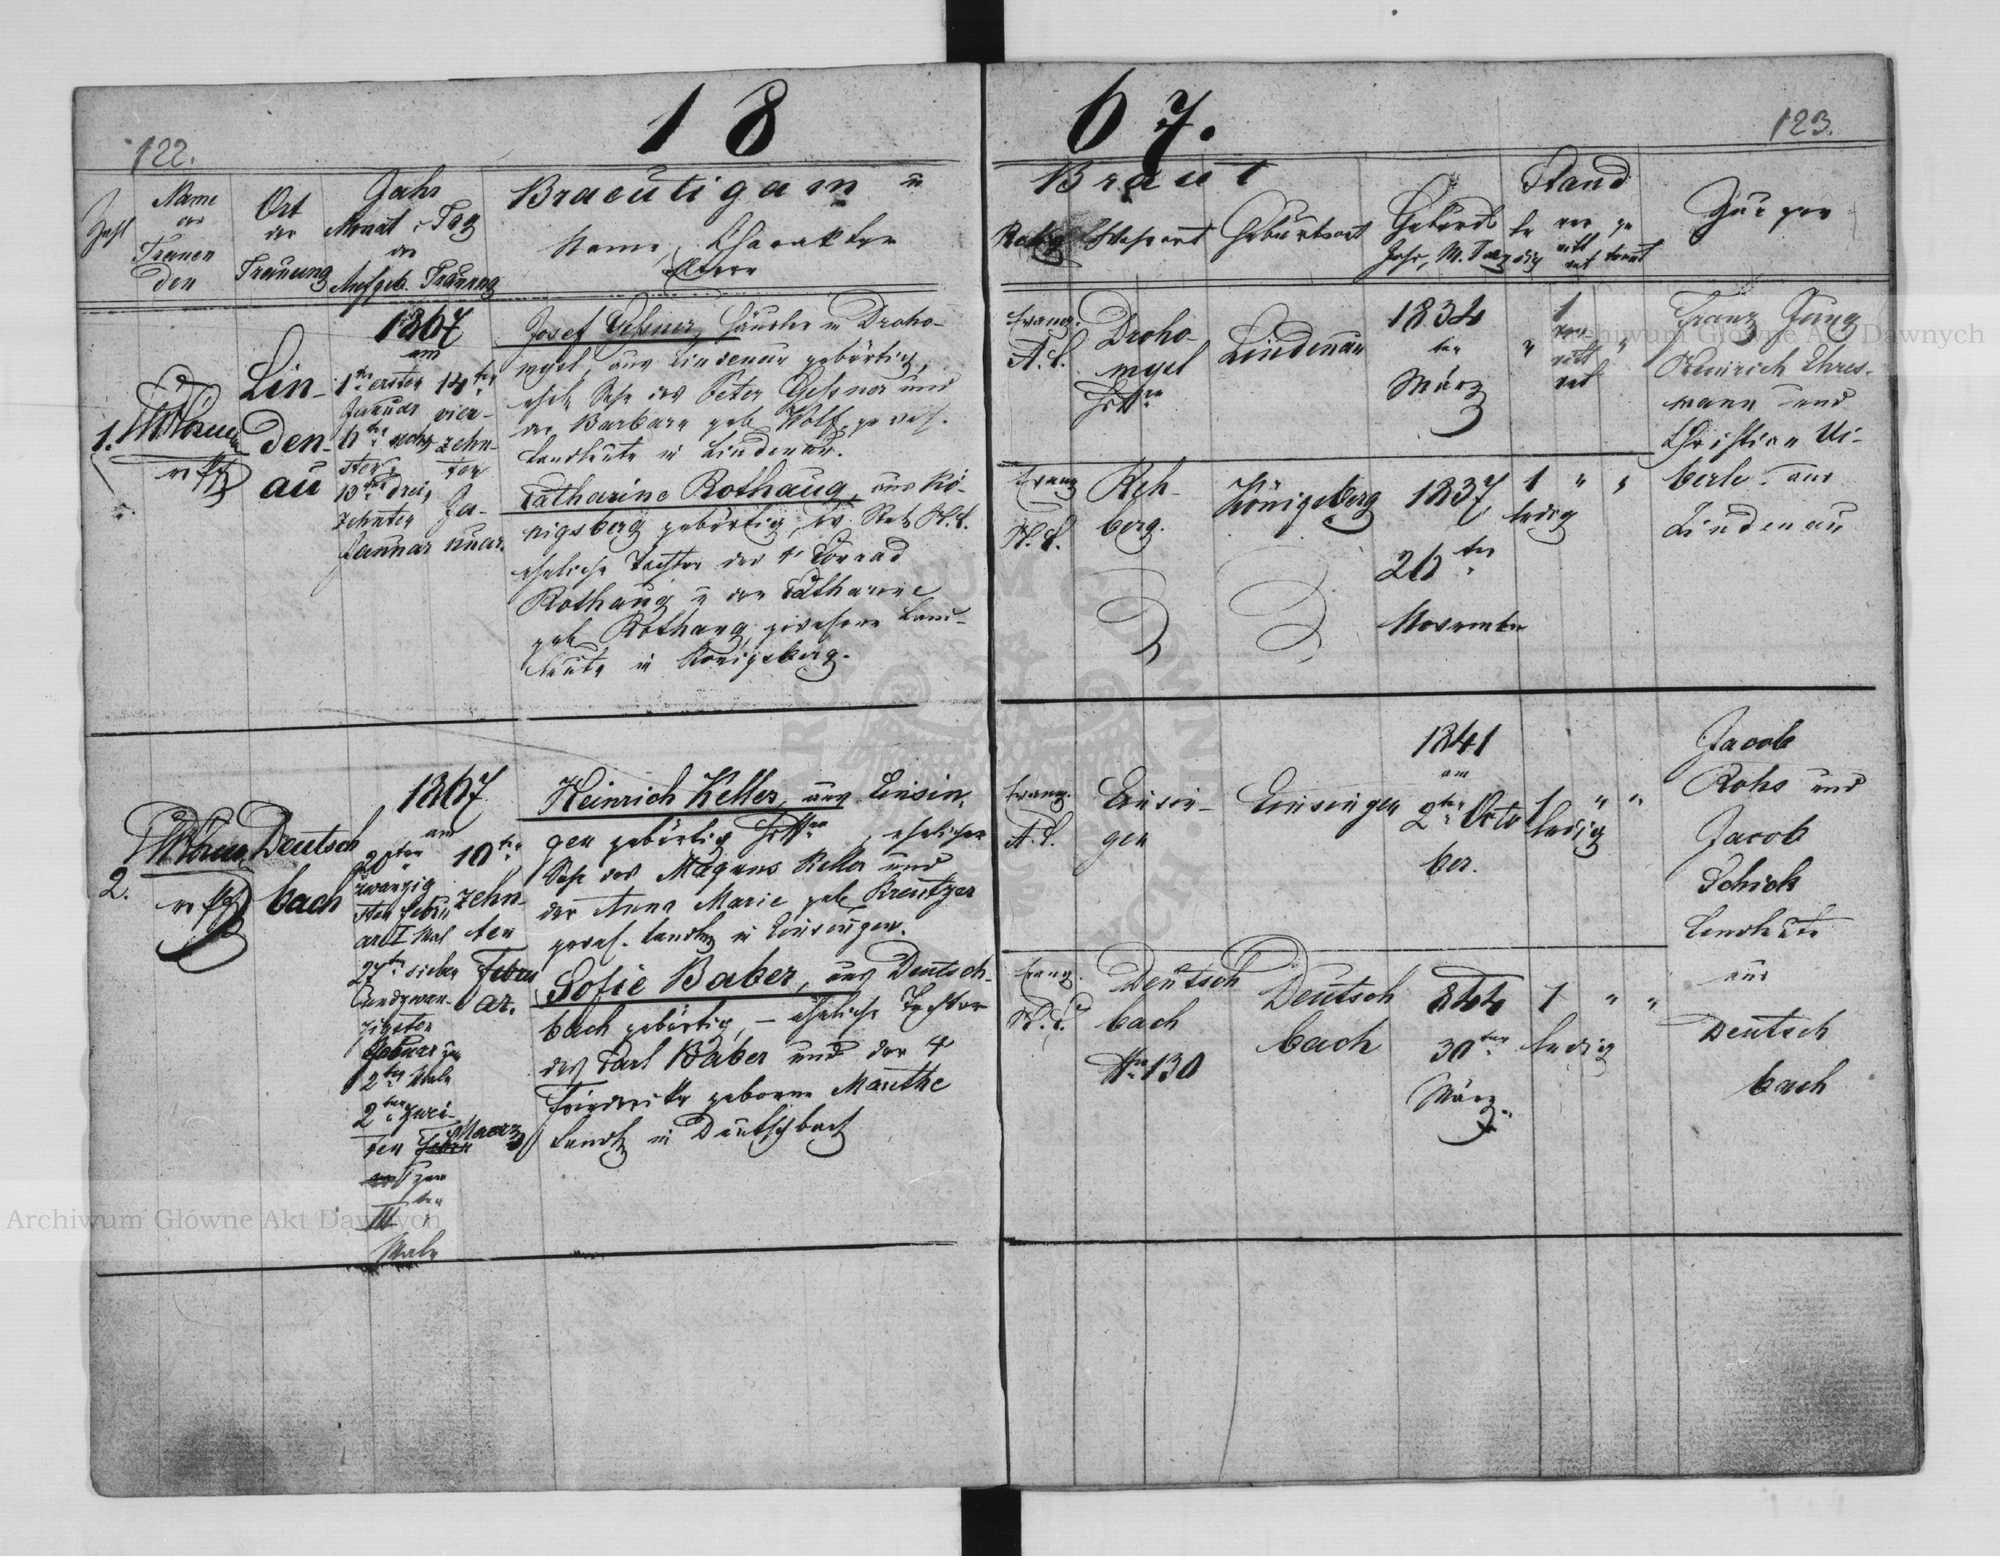 18
67.
122.
123.
Zahl
Name
der
Trauen
den
Ort
der
Trauung
Jahr
Monat u. Tag
der
Aufgeb. Trauung
Braeutigam u
Name, Charakter
Eltern
Braut
Relig
Wohnort
Geburtsort
Geburts
Jahr, M. Tag
Stand
le
dig
ver
witt
wet
ge
trennt
Zeugen
1.
Lin-
den-
au
1867
am
1te ersten
Januar
13te drei
zehnter
Januar
14ter
vier-
zehn-
ter
Ja-
nuar.
Josef Gessner, Häusler in Droho-
mysl, aus Lindenau gebürtig,
ehel. Sohn des Peter Gessner und
der Barbara geb. Wolf, gewes.
Landleute in Lindenau.
Catharine Rothaug, aus Kö-
nigsberg gebürtig, ev. Rel. A.C.
eheliche Tochter des † Conrad
Rothaug u der Catharine
geb. Rothaug, gewesene Land-
leute in Königsberg.
Evang.
A.C.
Droho-
mysl
Lindenau
1834
ten
März
" 1
ver
witt
wet
"
Franz Jung
Heinrich Ehres-
mann und
Christian Ui-
berle aus
Lindenau
Evang
A.C.
Reh-
berg.
Königsberg
1837
26ten
November
1 " "
ledig
2.
Deutsch
bach
1867
am
20ten
zwanzig
sten Febru
ar I Mal
27te sieben
und zwan-
zigsten
Februar zum
2ten Male
2ten zwei-
ten Maerz
zum
III ten
Male
10te
zehn-
ten
Febru
ar.
Heinrich Keller, aus Einsin-
gen gebürtig, ehelicher
Sohn des Magnus Keller und
der Anna Marie geb. Kreutzer
gewes. Landl. in Einsingen.
Sofie Baber, aus Deutsch-
bach gebürtig, – eheliche Tochter
des Carl Baber und der †
Friederike geborne Manthe
Landl. in Deutschbach
Evang.
A.C.
Einsin-
gen
Einsingen
1841
am
2ten Octo
ber.
1 " "
ledig
Jacob
Rohs und
Jacob
Schick
Landleute
aus
Deutsch
bach
Evang.
A.C.
Deutsch
bach
Nro 130
Deutsch
bach
844
30ten
März.
1 " "
ledig
Archiwum Główne Akt Dawnych
Archiwum Główne Akt Dawnych